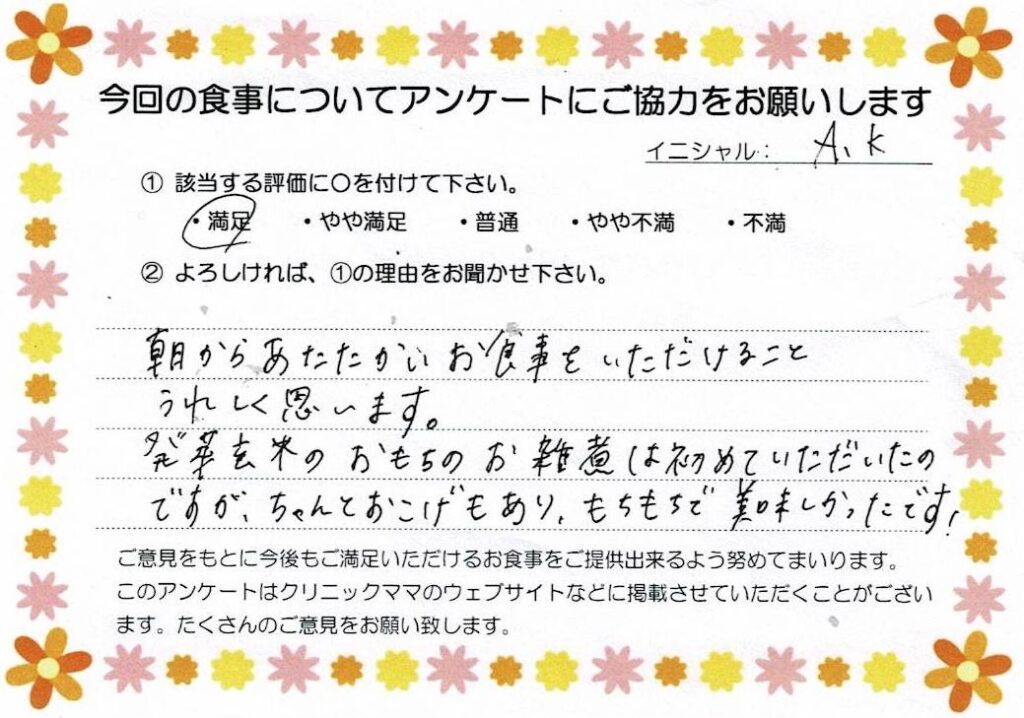 今回の食事についてアンケートにご協力をお願いします
イニシャル： A、K
① 該当する評価に〇を付けて下さい。
・満足 ・やや満足 ・普通 ・やや不満 ・不満
② よろしければ、①の理由をお聞かせ下さい。
朝からあたたかいお食事をいただけること
うれしく思います。
発芽玄米のおもちのお雑煮は初めていただいたの
ですが、ちゃんとおこげもあり、もちもちで美味しかったです!
ご意見をもとに今後もご満足いただけるお食事をご提供出来るよう努めてまいります。
このアンケートはクリニックママのウェブサイトなどに掲載させていただくことがござい
ます。たくさんのご意見をお願い致します。